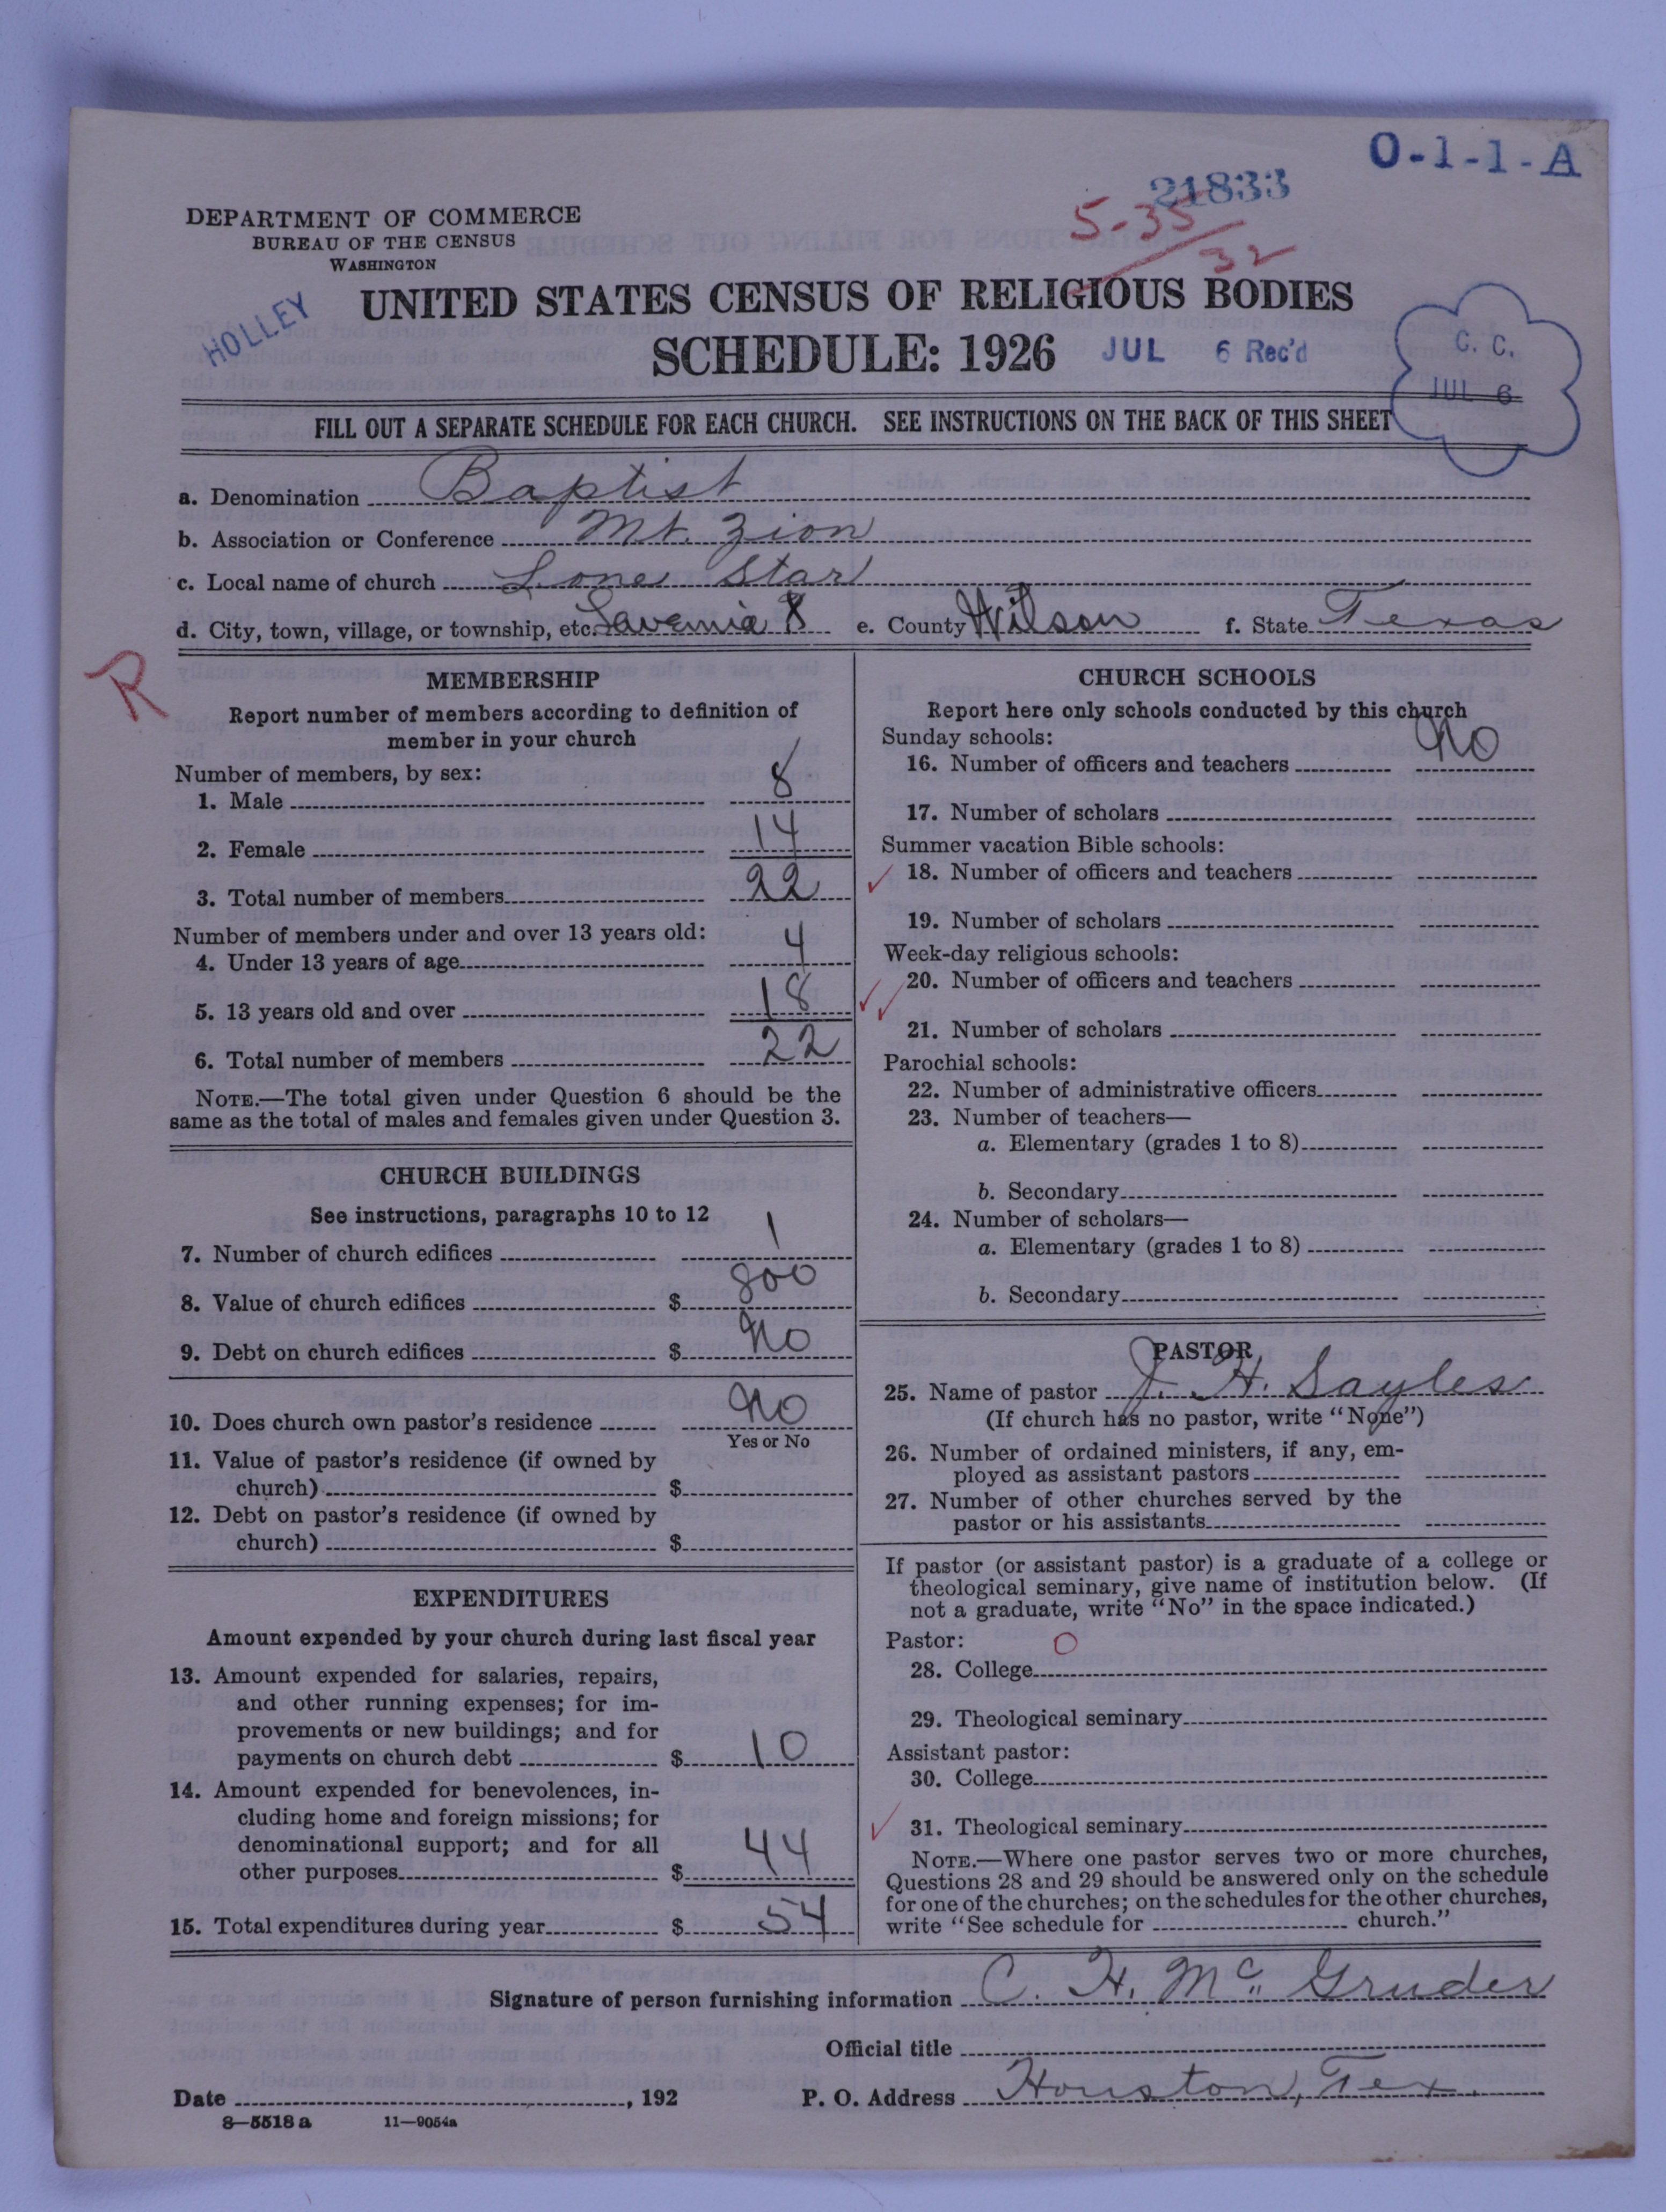 O-1-1-A
21833
5-35/32
DEPARTMENT OF COMMERCE
BUREAU OF THE CENSUS
WASHINGTON
HOLLEY
UNITED STATES CENSUS OF RELIGIOUS BODIES
SCHEDULE: 1926 JUL 6 Rec'd
C. C.
JUL 6
FILL OUT A SEPARATE SCHEDULE FOR EACH CHURCH. SEE INSTRUCTIONS ON THE BACK OF THIS SHEET
a. Denomination Baptist
b. Association or Conference Mt. Zion
c. Local name of church Lone Star
d. City, town, village, or township, etc. Lavernia 8 e. County Wilson f. State Texas
R
MEMBERSHIP
Report number of members according to definition of
member in your church
Number of members, by sex:
1. Male 8
2. Female 14
3. Total number of members 22
Number of members under and over 13 years old:
4. Under 13 years of age 4
5. 13 years old and over 18
6. Total number of members 22
NOTE.—The total given under Question 6 should be the
same as the total of males and females given under Question 3.
CHURCH BUILDINGS
See instructions, paragraphs 10 to 12
7. Number of church edifices 1
8. Value of church edifices $ 800
9. Debt on church edifices $ No
10. Does church own pastor's residence No
Yes or No
11. Value of pastor's residence (if owned by
church) $
12. Debt on pastor's residence (if owned by
church) $
EXPENDITURES
Amount expended by your church during last fiscal year
13. Amount expended for salaries, repairs,
and other running expenses; for im-
provements or new buildings; and for
payments on church debt $ 10
14. Amount expended for benevolences, in-
cluding home and foreign missions; for
denominational support; and for all
other purposes $ 44
15. Total expenditures during year $ 54
CHURCH SCHOOLS
Report here only schools conducted by this church
Sunday schools:
16. Number of officers and teachers No
17. Number of scholars
Summer vacation Bible schools:
18. Number of officers and teachers
19. Number of scholars
Week-day religious schools:
20. Number of officers and teachers
21. Number of scholars
Parochial schools:
22. Number of administrative officers
23. Number of teachers—
a. Elementary (grades 1 to 8)
b. Secondary
24. Number of scholars—
a. Elementary (grades 1 to 8)
b. Secondary
PASTOR
25. Name of pastor J. H. Sayles
(If church has no pastor, write "None")
26. Number of ordained ministers, if any, em-
ployed as assistant pastors
27. Number of other churches served by the
pastor or his assistants
If pastor (or assistant pastor) is a graduate of a college or
theological seminary, give name of institution below. (If
not a graduate, write "No" in the space indicated.)
Pastor: O
28. College
29. Theological seminary
Assistant pastor:
30. College
31. Theological seminary
NOTE.—Where one pastor serves two or more churches,
Questions 28 and 29 should be answered only on the schedule
for one of the churches; on the schedules for the other churches,
write "See schedule for church."
Signature of person furnishing information C. H. McGruder
Official title
Date , 192 P. O. Address Houston, Tex.
8—5518 a 11—9054a